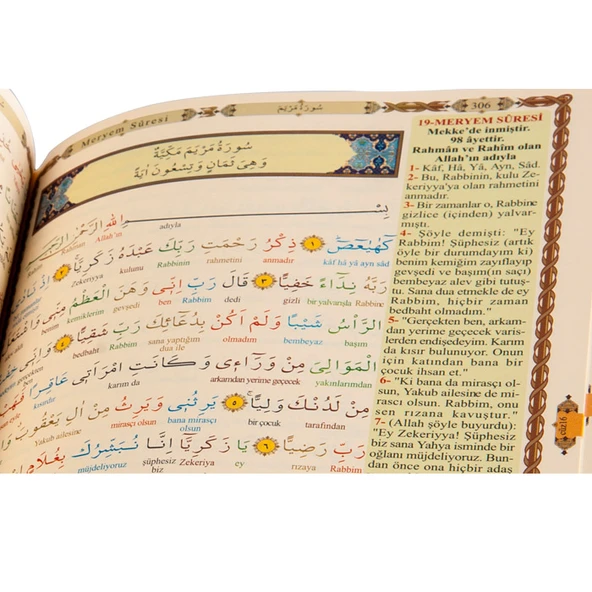 Meryem Sûresi
سُورَةُ مَرْيَمَ
306
سُورَةُ مَرْيَمَ مَكِّيَّةٌ
وَهِىَ ثَمَانٍ وَتِسْعُونَ اٰيَةً
بِسْمِ اللّٰهِ الرَّحْمٰنِ الرَّحِيمِ
adıyla Allah'ın Rahman
كٓهٰيٰعٓصٓ ١ ذِكْرُ رَحْمَتِ رَبِّكَ عَبْدَهُ زَكَرِيَّا ٢
kâf hâ yâ ayn sâd anmadır rahmetini Rabbinin kulunu Zekeriyya
رَبَّهُ نِدَٓاءً خَفِيًّا ٣ قَالَ رَبِّ اِنّٖى وَهَنَ الْعَظْمُ
Rabbine bir yalvarışla gizli dedi Rabbim ben gevşedi kemiklerim benim
الرَّأْسُ شَيْبًا وَلَمْ اَكُنْ بِدُعَٓائِكَ رَبِّ شَقِيًّا ٤
başım bembeyaz olmadım sana yaptığım dua ile Rabbim bedbaht
الْمَوَالِىَ مِنْ وَرَٓاءٖى وَكَانَتِ امْرَاَتٖى عَاقِرًا
yakınlarımdan arkamdan yerime geçecek karım da
مِنْ لَدُنْكَ وَلِيًّا ٥ يَرِثُنٖى وَيَرِثُ مِنْ اٰلِ يَعْقُوبَ
tarafından bir çocuk bana mirasçı olsun mirasçı olsun Yakub ailesine
رَبِّ رَضِيًّا ٦ يَا زَكَرِيَّٓا اِنَّا نُبَشِّرُكَ بِغُلَامٍ
Rabbim rızaya ey Zekeriya şüphesiz biz müjdeliyoruz
19-MERYEM SÛRESİ
Mekke'de inmiştir.
98 âyettir.
Rahmân ve Rahîm olan
Allah'ın adıyla
1- Kâf, Hâ, Yâ, Ayn, Sâd.
2- Bu, Rabbinin, kulu Ze-
keriyya'ya olan rahmetini
anmadır.
3- Bir zamanlar o, Rabbine
gizlice (içinden) yalvar-
mıştı.
4- Şöyle demişti: "Ey
Rabbim! Şüphesiz (artık
öyle bir durumdayım ki)
benim kemiğim zayıflayıp
gevşedi ve başım(ın saçı)
bembeyaz alev gibi tutuş-
tu. Sana dua etmekle de ey
Rabbim, hiçbir zaman
bedbaht olmadım."
5- "Gerçekten ben, arkam-
dan yerime geçecek varis-
lerden endişedeyim. Karım
da kısır bulunuyor. Onun
için katından bana bir
çocuk ihsan et."
6- "Ki bana da mirasçı ol-
sun, Yakub ailesine de mi-
rasçı olsun. Rabbim, onu
sen rızana kavuştur."
7- (Allah şöyle buyurdu):
"Ey Zekeriyya! Şüphesiz
biz sana Yahya isminde bir
oğlanı müjdeliyoruz. Bun-
dan önce ona hiçbir adaş
cüz16